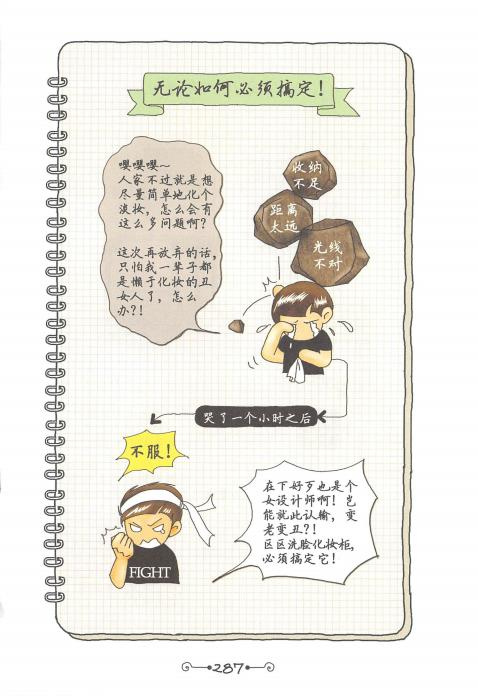 无论如何必须搞定！
嘤嘤嘤~
人家不过就是想
尽量简单地化个
淡妆，怎么会有
这么多问题啊？
这次再放弃的话，
只怕我一辈子都
是懒于化妆的丑
女人了，怎么
办？！
收纳
不足
距离
太远
光线
不对
哭了一个小时之后
不服！
在下好歹也是个
女设计师啊！岂
能就此认输，变
老变丑？！
区区洗脸化妆柜，
必须搞定它！
FIGHT
287